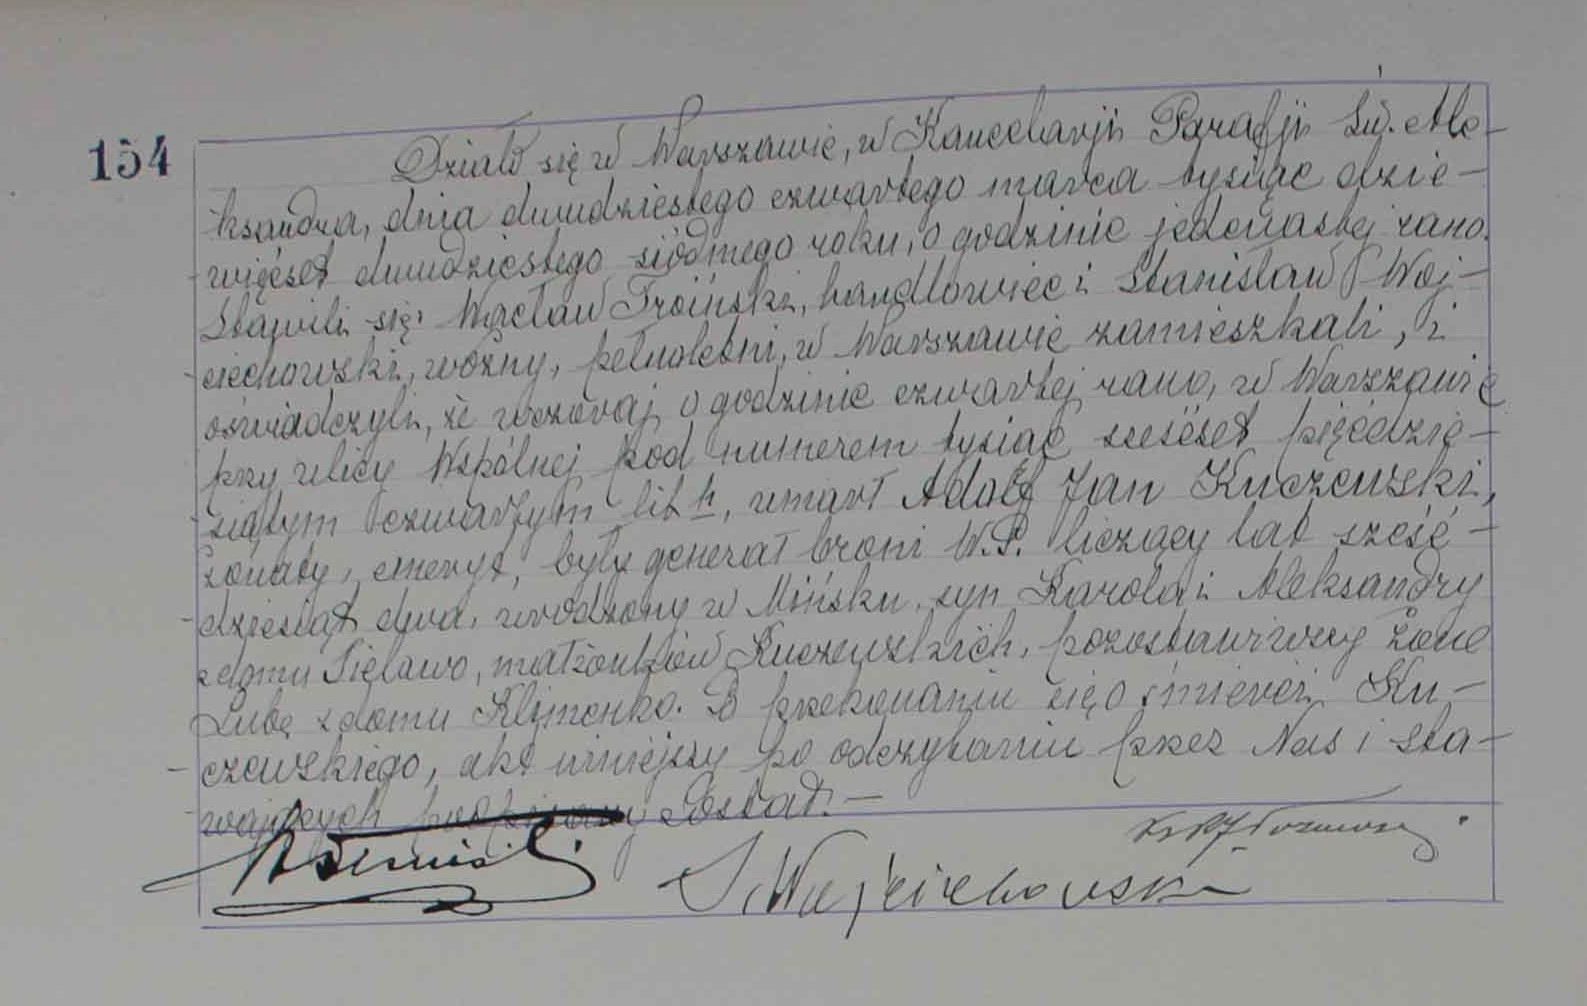 154
Działo się w Warszawie, w Kancelarji Parafji Św. Ale-
ksandra, dnia dwudziestego czwartego marca tysiąc dzie-
więćset dwudziestego siódmego roku, o godzinie jedenastej rano.
Stawili się: Wacław Troiński, handlowiec i Stanisław Woj-
ciechowski, woźny, pełnoletni, w Warszawie zamieszkali, i
oświadczyli, że wczoraj o godzinie czwartej rano, w Warszawie
przy ulicy Wspólnej pod numerem tysiąc sześćset pięćdzie-
siątym czwartym lit h, umarł Adolf Jan Kuczewski,
żonaty, emeryt, były generał broni W.P. liczący lat sześć-
dziesiąt dwa, urodzony w Mińsku, syn Karola i Aleksandry
z domu Sielawo, małżonków Kuczewskich, pozostawiwszy żonę
Lubę z domu Klimenko. Po przekonaniu się o śmierci Ku-
czewskiego, akt niniejszy po odczytaniu przez Nas i sta-
wających podpisany został.—
S. Wojciechowski